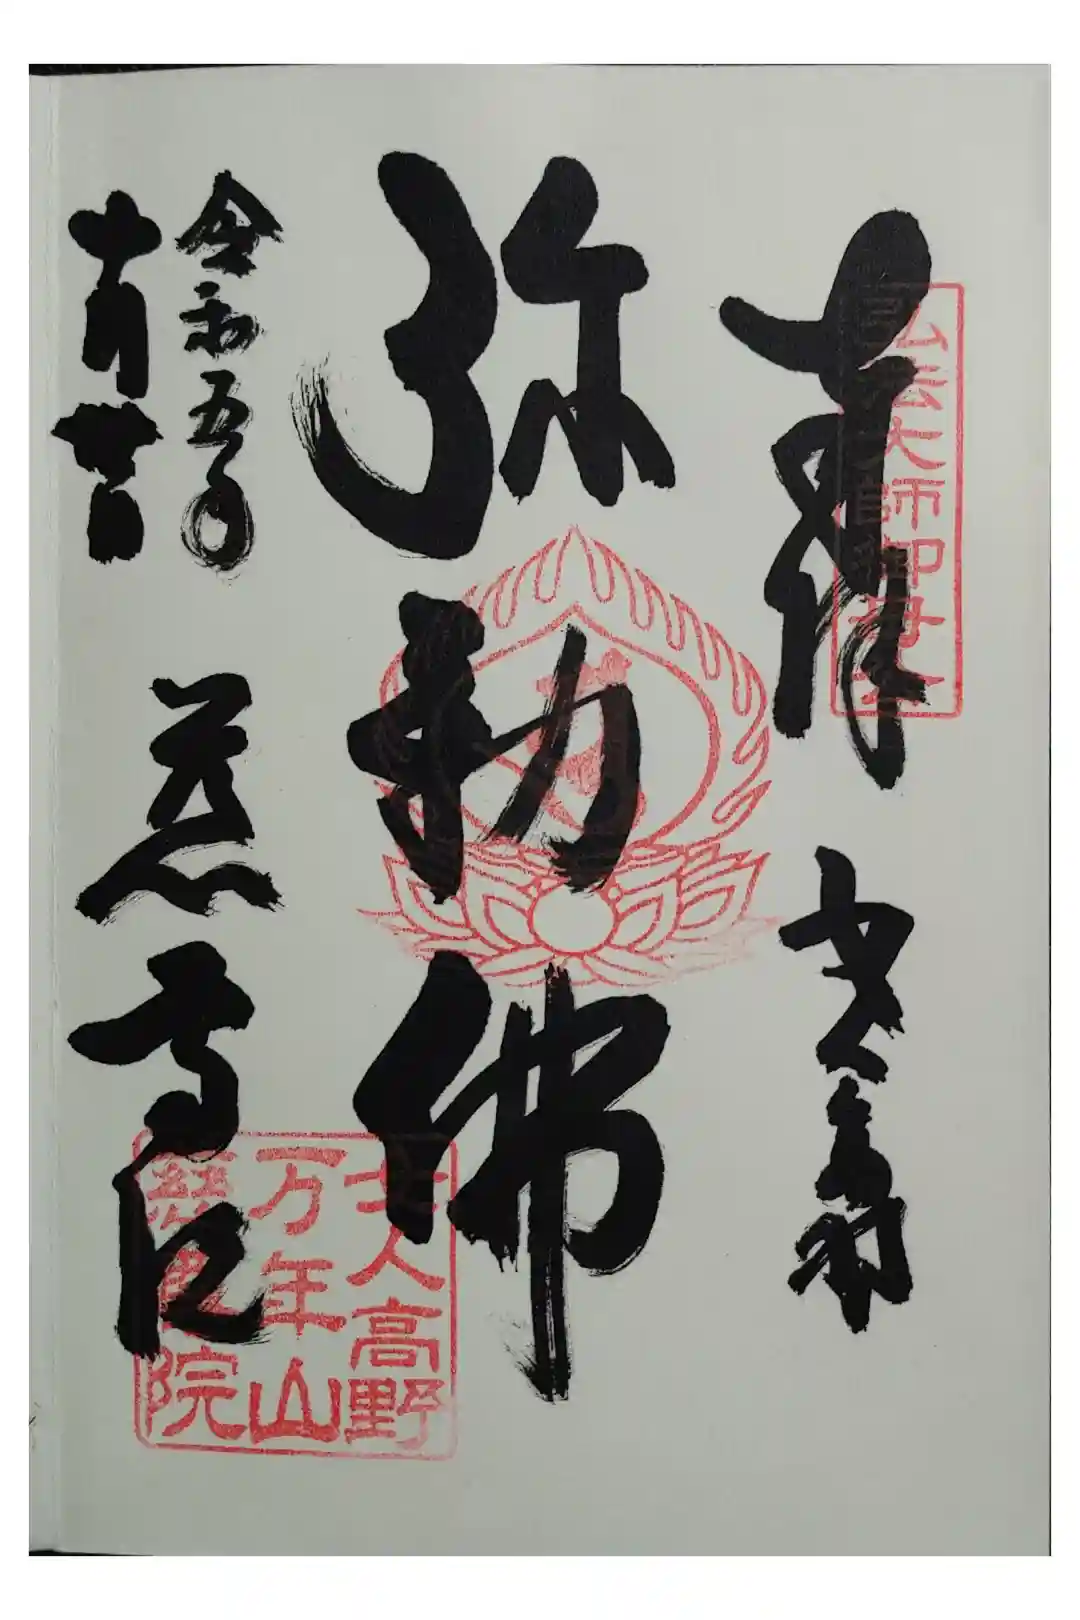 弘法大師御母公
奉拝
女人高野
弥勒佛
令和五年
十月
慈尊院
女人高野
万年山
慈尊院